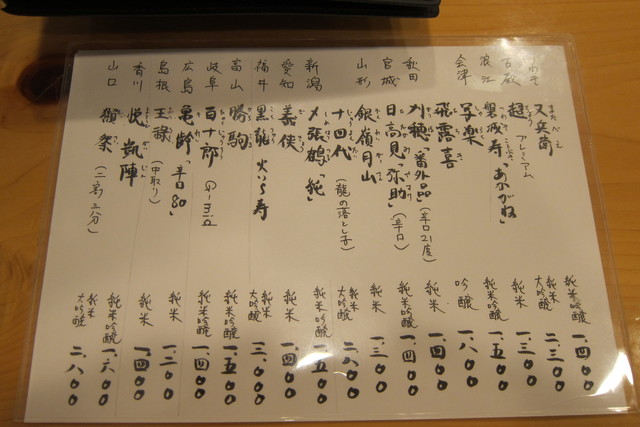 いわき 又兵衛 純米吟醸 一、四〇〇
超 プレミアム 純米大吟醸 二、三〇〇
浪江 磐城寿「あかがね」 純米 一、三〇〇
会津 写楽 純米吟醸 一、五〇〇
飛露喜 吟醸 一、八〇〇
秋田 刈穂「番外品」(辛口21度) 純米 一、四〇〇
宮城 日高見「弥助」(辛口) 純米吟醸 一、四〇〇
山形 銀嶺月山 純米 一、三〇〇
十四代(龍の落とし子) 純米大吟醸 二、八〇〇
新潟 〆張鶴「純」 純米吟醸 一、五〇〇
愛知 義侠 純米 一、四〇〇
福井 黒龍 火いら寿 純米大吟醸 二、〇〇〇
富山 勝駒 純米吟醸 一、五〇〇
岐阜 百十郎 純米吟醸 一、四〇〇
広島 亀齢「辛口80」 純米 一、三〇〇
島根 王祿(中取り) 純米 一、四〇〇
香川 悦凱陣 純米吟醸 一、六〇〇
山口 獺祭(二割三分) 純米大吟醸 二、八〇〇